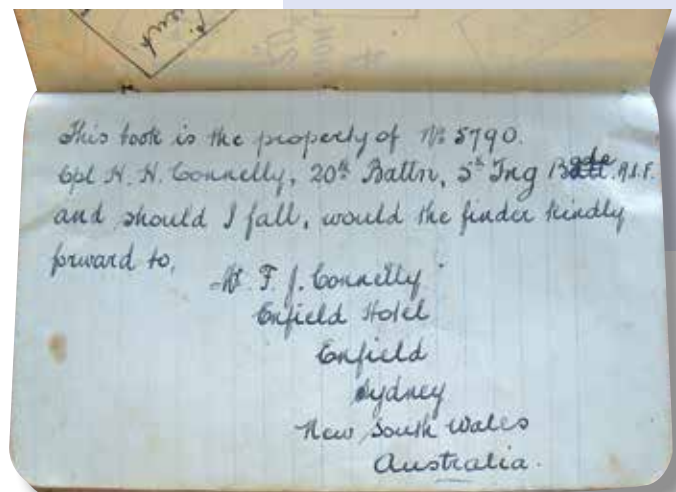 This book is the property of No 5790.
Cpl H. H. Connelly, 20th Battn, 5th Trng Bgde. A.I.F.
and should I fall, would the finder kindly
forward to,
Mr F J. Connelly
Enfield Hotel
Enfield
Sydney
New South Wales
Australia.